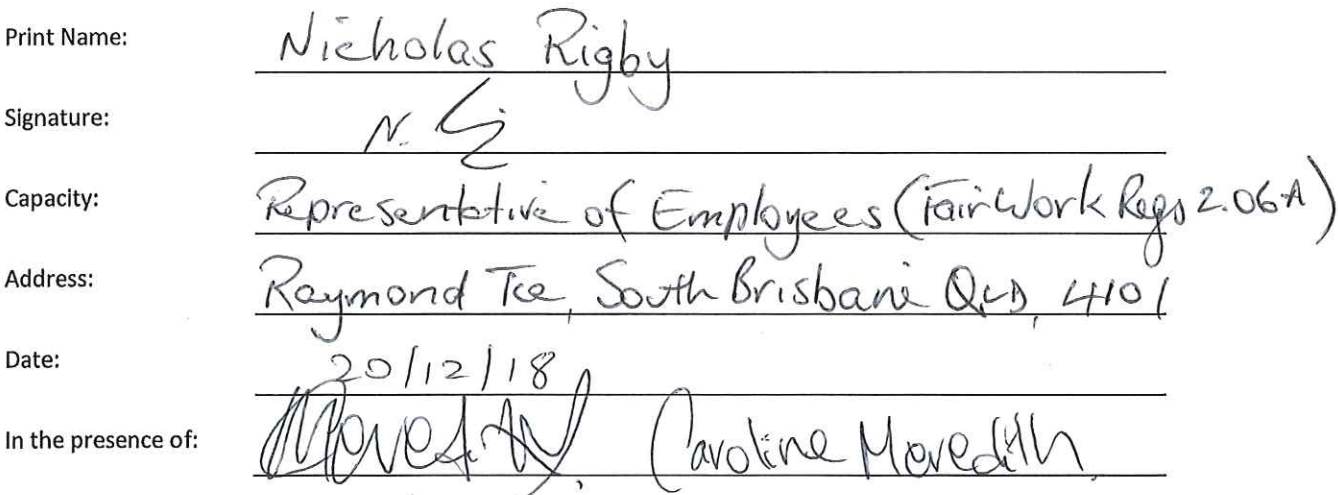 Print Name: Nicholas Rigby
Signature: N.
Capacity: Representative of Employees (Fair Work Regs 2.06A)
Address: Raymond Tce, South Brisbane QLD, 4101
Date: 20/12/18
In the presence of: Caroline Meredith